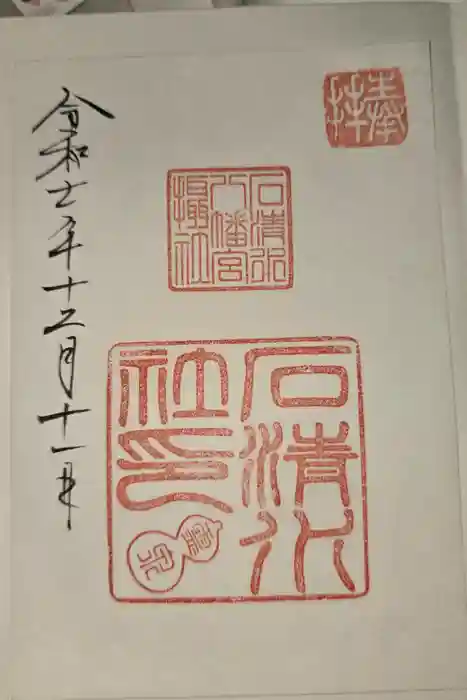 捧拝
石清水
八幡宮
攝社
石清水
社印
令和七年十二月十一日